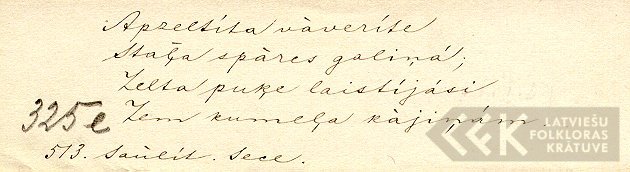 Apzeltīta vāverīte
Stāja spāres galiņá;
Zelta puķe laistījási
325e Zem kumeļa kājiņám.
513. Saūlīt. Sece.
LATVIEŠU
FOLKLORAS
KRĀTUVE
LFK